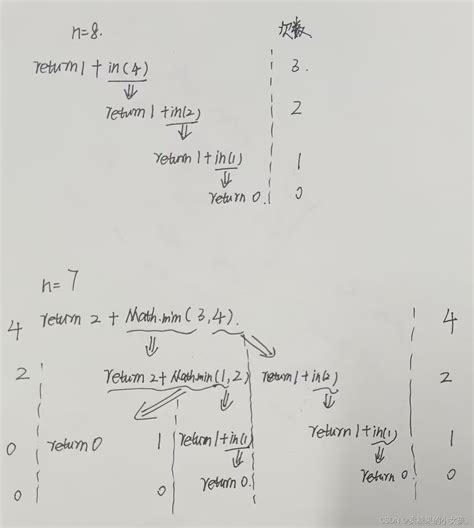 n=8. 次数
return 1 + in(4) 3.
return 1 + in(2) 2
return 1 + in(1) 1
return 0. 0
n= 7
4 return 2 + Math.min(3,4). 4
2 return 2 + Math.min(1,2) return 1 + in(2) 2
0 return 0 1 return 1 + in(1) return 1 + in(1) 1
0 0 return 0. return 0. 0
CSDN @